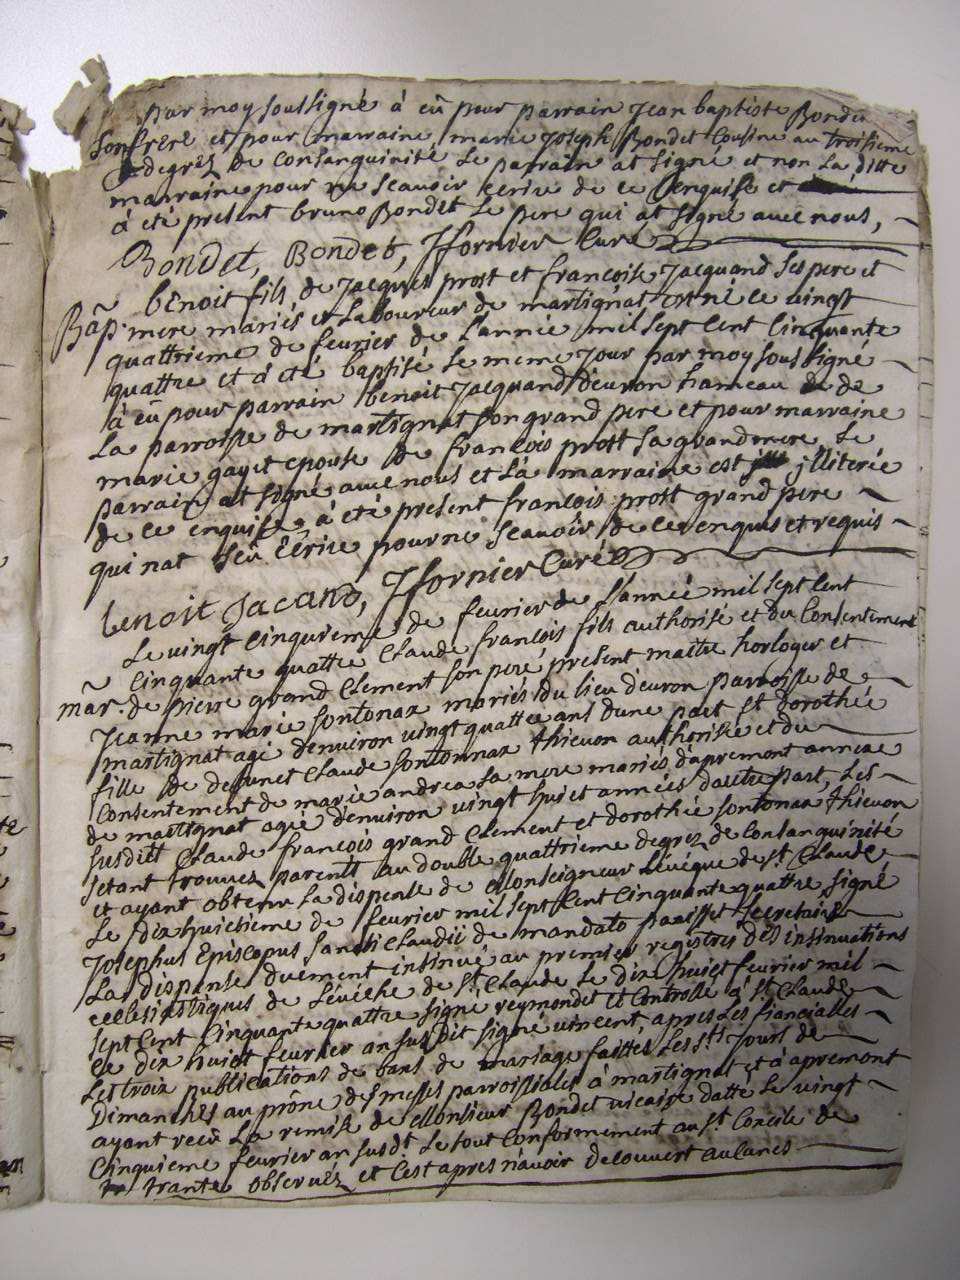 par moy soussigné à eû pour parrain Jean baptiste Bondet
son frere et pour marraine marie Joseph Bondet Cousine au troisieme
degréz de Consanguinité Le parrain at signé et non La ditte
marraine pour ne scavoir écrire de ce enquise et
à eté present bruno Bondet Le pere qui at signé avec nous,
Bondet, Bondet, Jfornier Curé
benoit fils de Jacques prost et francoise Jacquand ses pere et
Bâp. mere mariés et Laboureur de martignat est né ce vingt
quattrieme de feurier de L'année mil sept Cent Cinquante
quattre et à eté baptisé Le meme Jour par moy soussigné
à eû pour parrain benoit Jacquand d'euron hameau de
La parroisse de martignat son grand pere et pour marraine
marie gayet epouse de francois prost sa grandmere Le
parrain at signé avec nous et La marraine est jlliterée
de ce enquise, à eté present francois prost grand pere
qui nat sçeu Ecrire pour ne Scavoir de ce enquis et requis
benoit Jacand, Jfornier Curé
Le vingt Cinquieme de feurier de L'année mil sept Cent
Cinquante quattre Claude francois fils authorisé et du Consentement
mar. de pierre grand Clement son pere present maitre horloger et
Jeanne marie sontonax mariés du lieu d'euron parroisse de
martignat agé denviron vingt quattre ans dune part et dorothée
fille de defunct Claude sontonnax thieuon authorisée et du
Consentement de marie andrea sa mere mariés dapremont annexe
de martignat agée d'enuiron vingt huiet années dautre part, Les
susditt Claude francois grand Clement et dorothée sontonax thieuon
setant trouvez parentt au double quattrieme degréz de Consanguinité
et ayant obtenu La dispense de Monseigneur Lévéque de st. Claude
Le dix huietieme de feurier mil sept Cent Cinquante quattre signé
Josephus Episcopus sancti Claudii de mandato paisset Secretaire
La dispense duement insinué au premier registres des insinuations
ecclesiastiques de Lévéché de st. Claude Le dix huiet feurier mil
sept Cent Cinquante quattre signé reymondet et Controllé à st. Claude
Ce dix huiet feurier an sus dit signé vincent, apres Les fiancialles
Les troix publications de bans de mariage faittes Les sts. Jours de
Dimanches au prône des messes parroissiales à martignat et à apremont
ayant reçu La remise de Monsieur Bondet vicaire datté Le vingt
Cinquieme feurier an susdt. Le tout Conformement au st. Concile de
trante observéz et C'est apres n'auoir decouvert aucunes